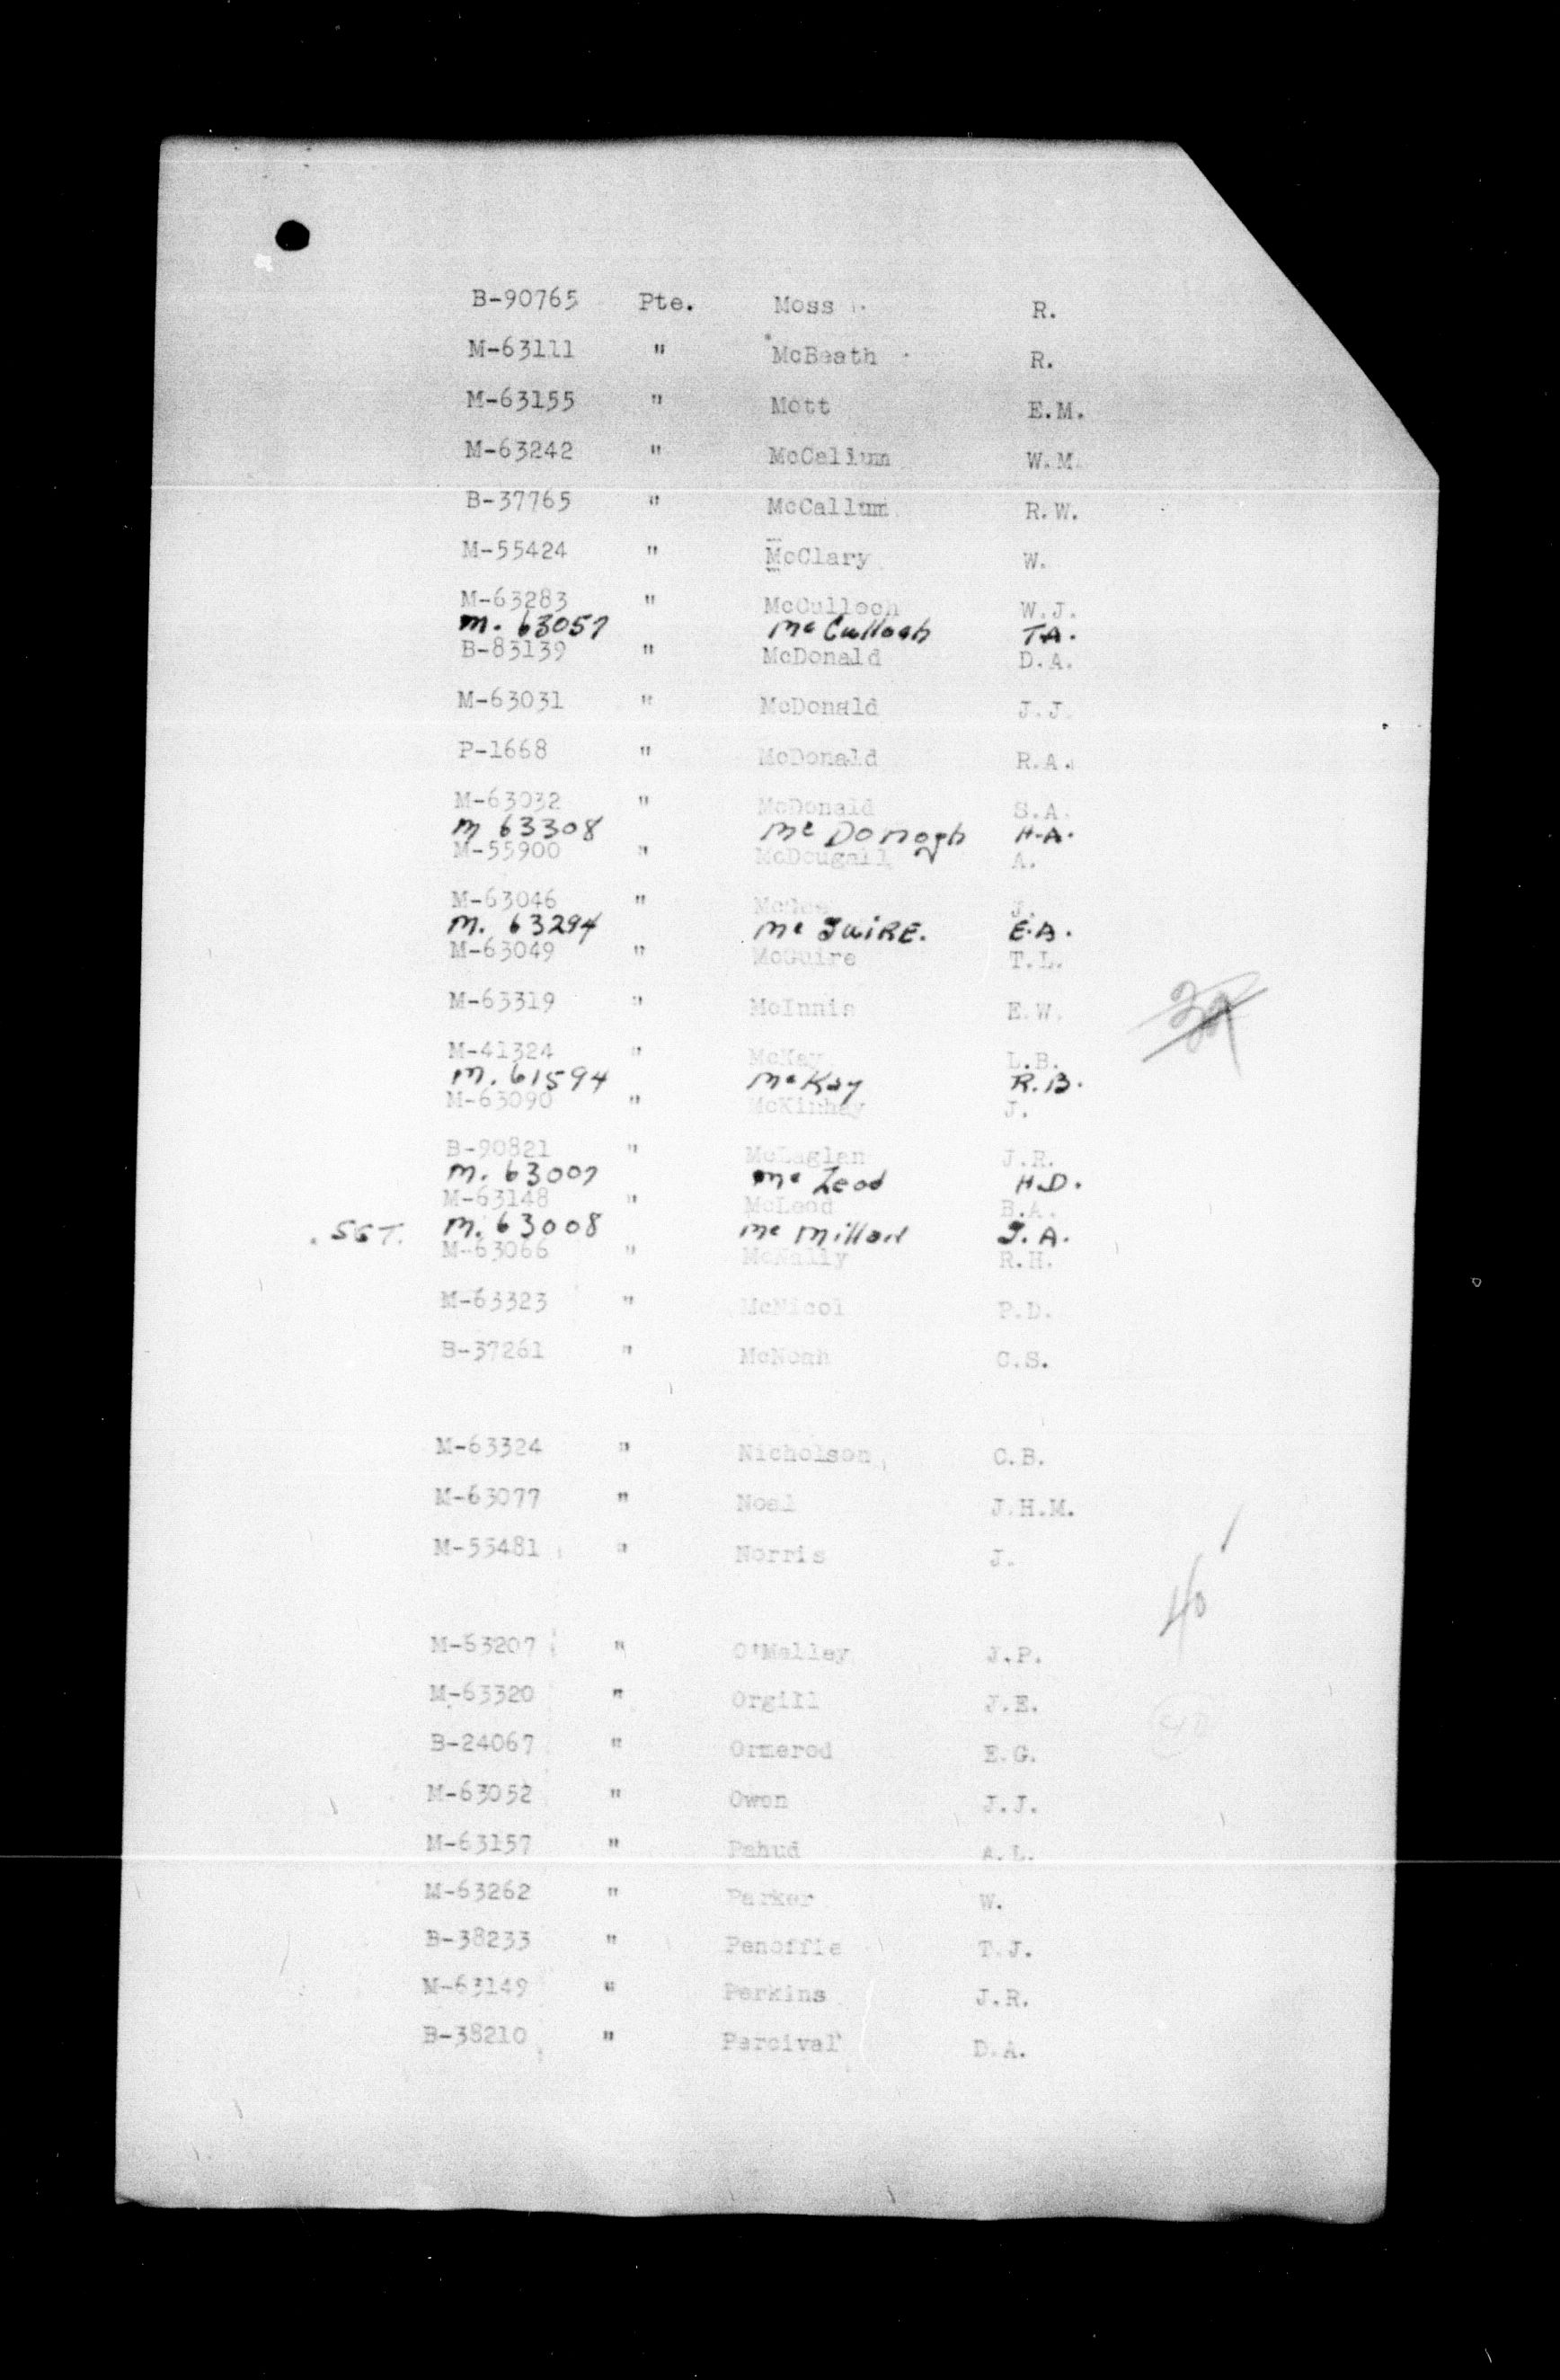 B-90765 Pte. Moss R.
M-63111 " McBeath R.
M-63155 " Mott E.M.
M-63242 " McCallum W.M.
B-37765 " McCallum R.W.
M-55424 " McClary W.
M-63283 " McCulloch W.J.
M. 63057 McCulloch T.A.
B-83139 " McDonald D.A.
M-63031 " McDonald J.J.
P-1668 " McDonald R.A.
M-63032 " McDonald S.A.
M 63308 Mc Donogh H.A.
M-55900 " McDougall A.
M-63046 " McGee J.
M. 63294 Mc GuiRE. E.B.
M-63049 " McGuire T.L.
M-63319 " McInnis E.W.
39
M-41324 " McKay L.B.
M. 61594 McKay R.B.
M-63090 " McKinhay J.
B-90821 " McLaglan J.R.
M. 63007 Mc Leod H.D.
M-63148 " McLeod B.A.
SGT. M. 63008 Mc Millan J.A.
M-63066 " McNally R.H.
M-63323 " McNicol P.D.
B-37261 " McNoah C.S.
M-63324 " Nicholson C.B.
M-63077 " Noal J.H.M.
M-55481 " Norris J.
40
M-63207 " O'Malley J.P.
M-63320 " Orgill J.E.
40
B-24067 " Ormerod E.G.
M-63052 " Owen J.J.
M-63157 " Pahud A.L.
M-63262 " Parker W.
B-38233 " Penoffie T.J.
M-63149 " Perkins J.R.
B-38210 " Percival D.A.